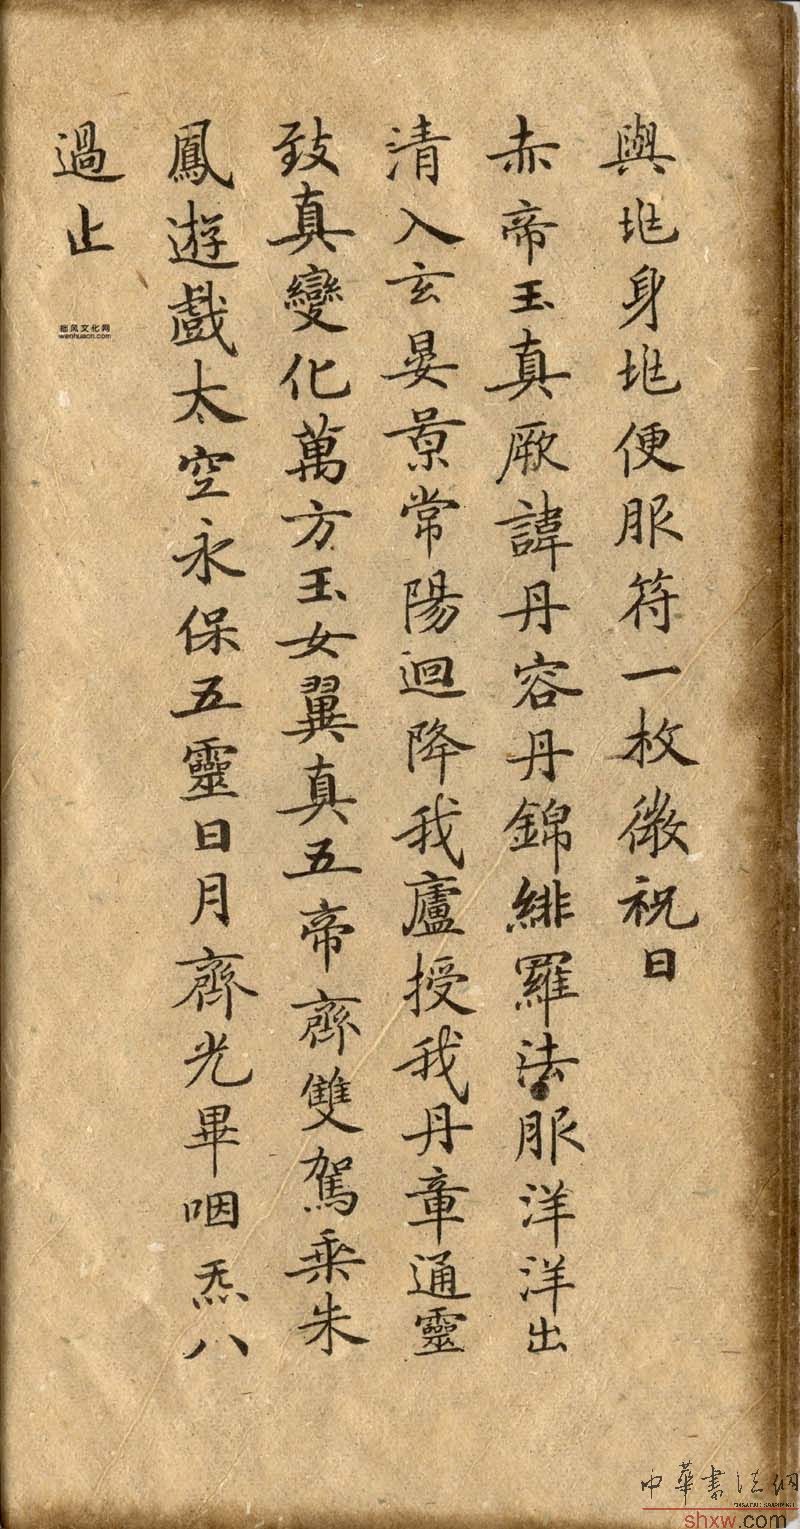 與𡉏身𡉏便服符一枚微祝曰
赤帝玉真厥諱丹容丹錦緋羅法服洋洋出
清入玄晏景常陽迴降我廬授我丹章通靈
致真變化萬方玉女翼真五帝齊雙駕乘朱
鳳遊戲太空永保五靈日月齊光畢咽炁八
過止
拙风文化网
wenhuacn.com
中華書法網
shxw.com